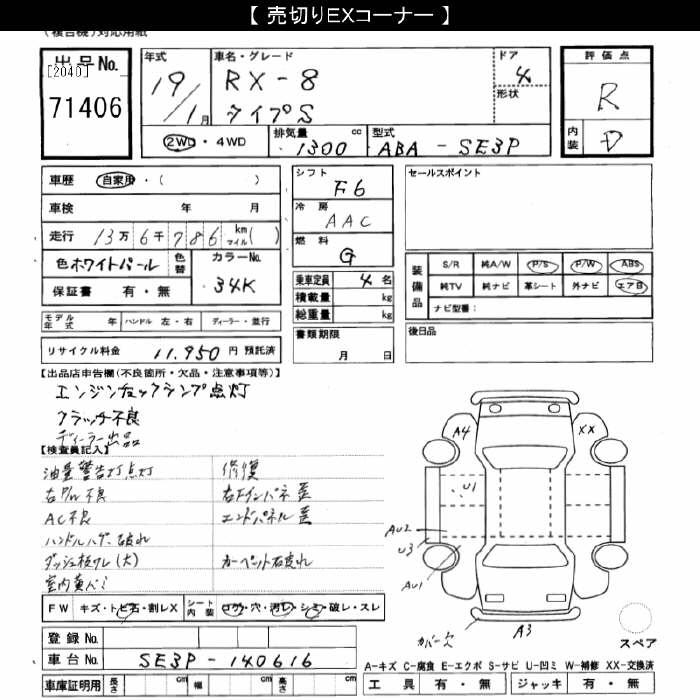 【 売切りEXコーナー 】
(複合機)対応用紙
出品No.
[2040]
71406
年式
19/1月
車名・グレード
RX-8
タイプS
ドア
4
形状
評価点
R
内装
D
2WD・4WD
排気量
1300 cc
型式
ABA - SE3P
車歴 自家用・( )
車検 年 月
走行 13万 6千 786 km マイル( )
色 ホワイトパール 色替
カラーNo.
34K
保証書 有・無
モデル年式 年 ハンドル 左・右 ディーラー・並行
リサイクル料金 11,950 円 預託済
シフト
F6
冷房
AAC
燃料
G
乗車定員 4 名
積載量 kg
総重量 kg
書類期限
月 日
セールスポイント
装備品
S/R 純A/W P/S P/W ABS
純TV 純ナビ 革シート 外ナビ エアB
ナビ型番:
後日品
【出品店申告欄(不良箇所・欠品・注意事項等)】
エンジンチェックランプ点灯
クラッチ不良
ディーラー出品
【検査員記入】
油量警告灯点灯
右P/W不良
AC不良
ダッシュ板ワレ(大)
修復
右Fインパネ歪
エンドパネル歪
カーペット右破れ
FW キズ・トビ石・割レX
シート内装 コゲ・穴・汚レ・シミ・破レ・スレ
登録No.
車台No. SE3P - 140616
車庫証明用 長さ cm 幅 cm 高さ cm
A4
XX
U1
AU2
U3
AU1
A3
カバー欠
スペア
A-キズ C-腐食 E-エクボ S-サビ U-凹ミ W-補修 XX-交換済
工具 有・無 ジャッキ 有・無